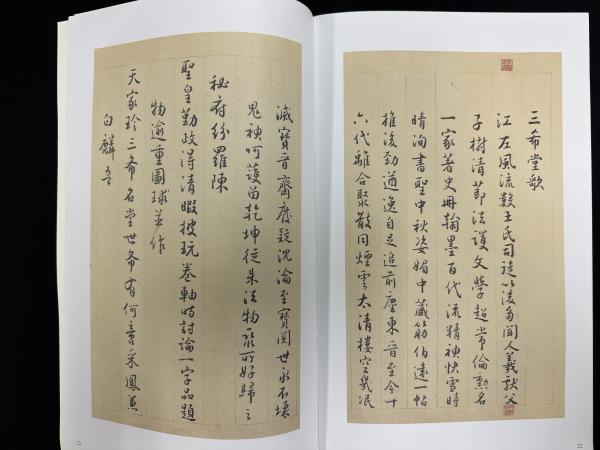 三希堂歌
江左風流數王氏司徒以後多聞人羲獻父
子樹清節法護文學超常倫勲名
一家著史冊翰墨百代流精神快雪時
晴洵書聖中秋姿媚中藏筋伯遠一帖
推後勁遒逸自足追前塵東晉至今十
六代離合聚散同煙雲太清樓空幾泯
22
滅寶晉齋廢疑沈淪至寶閱世永不壞
鬼神呵護留乾坤從來法物聚所好歸之
秘府紛羅陳
聖皇勤政得清暇披玩卷軸時討論一字品題
物逾重圖球並作
天家珍三希名堂世希有何啻采鳳兼
白麟吾